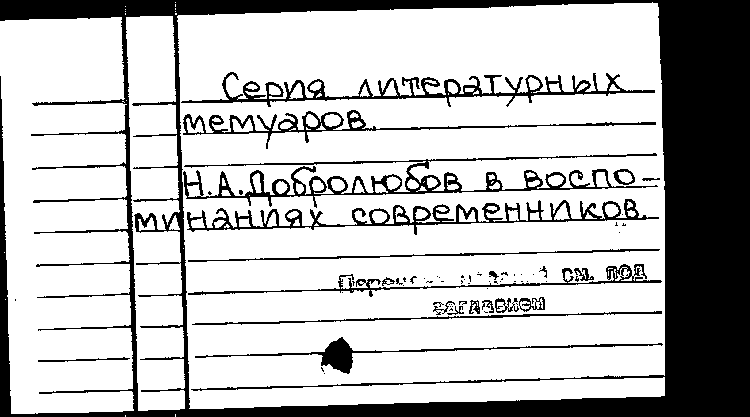 Серия литературных
мемуаров.
Н.А.Добролюбов в воспо-
минаниях современников.
см. под
заглавием